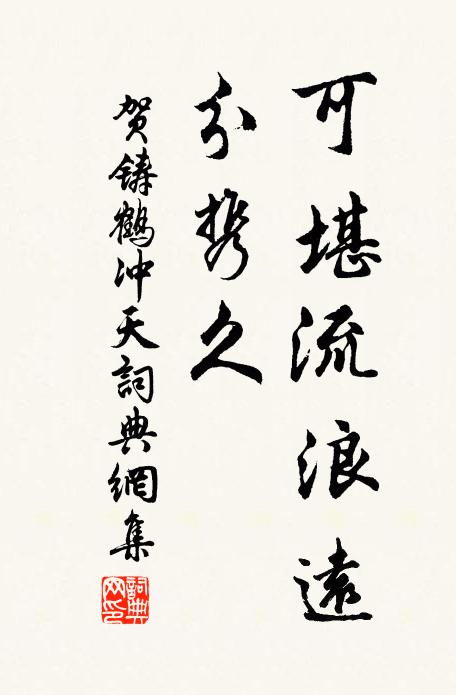 可堪流浪遠
分携久
贺鋳鶴冲天詞典網集
詞典网印